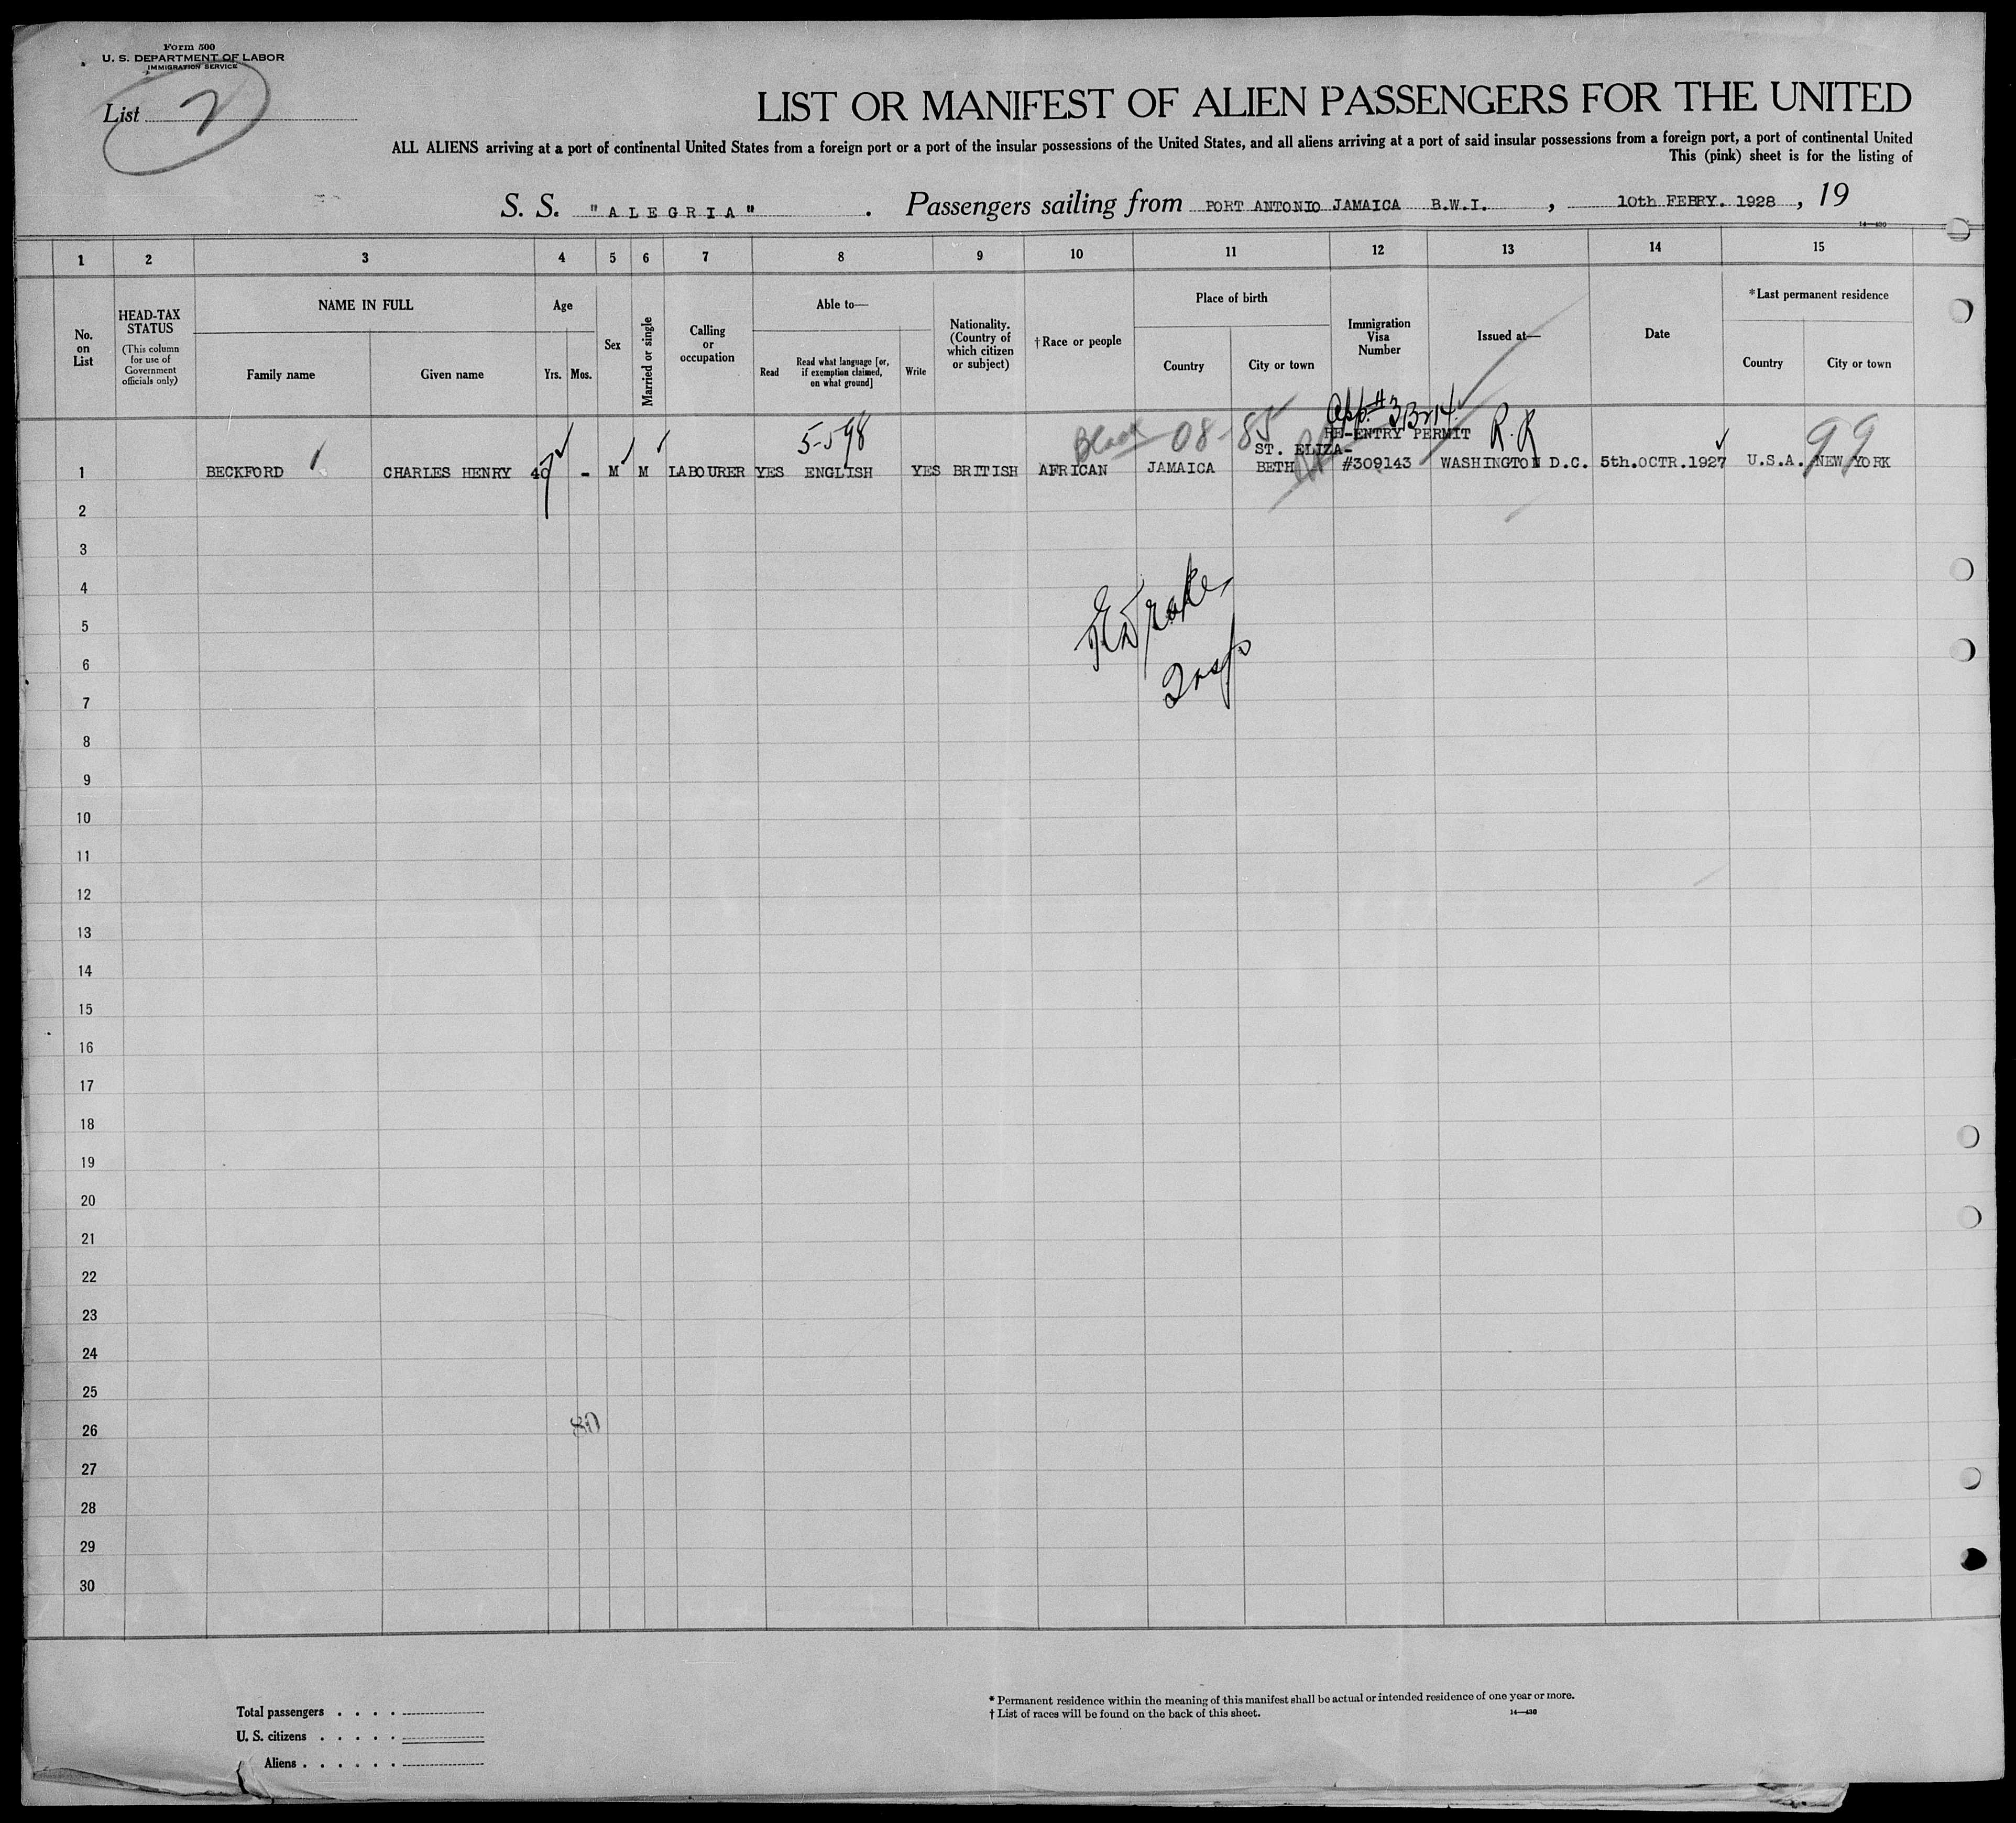 Form 500
U. S. DEPARTMENT OF LABOR
IMMIGRATION SERVICE
List 2
LIST OR MANIFEST OF ALIEN PASSENGERS FOR THE UNITED
ALL ALIENS arriving at a port of continental United States from a foreign port or a port of the insular possessions of the United States, and all aliens arriving at a port of said insular possessions from a foreign port, a port of continental United
This (pink) sheet is for the listing of
S. S. "ALEGRIA" . Passengers sailing from PORT ANTONIO JAMAICA B.W.I. , 10th FEBRY. 1928 , 19
14—430
1 2 3 4 5 6 7 8 9 10 11 12 13 14 15
No. on List
HEAD-TAX STATUS
(This column for use of Government officials only)
NAME IN FULL
Family name
Given name
Age
Yrs.
Mos.
Sex
Married or single
Calling or occupation
Able to—
Read
Read what language [or, if exemption claimed, on what ground]
Write
Nationality. (Country of which citizen or subject)
†Race or people
Place of birth
Country
City or town
Immigration Visa Number
Issued at—
Date
*Last permanent residence
Country
City or town
5-598
Black 08-85
RE-ENTRY PERMIT R.R
ST. ELIZA-
1 BECKFORD CHARLES HENRY 49 - M M LABOURER YES ENGLISH YES BRITISH AFRICAN JAMAICA BETH #309143 WASHINGTON D.C. 5th.OCTR.1927 U.S.A. NEW YORK
99
2
3
4
5
6
7
8
9
10
11
12
13
14
15
16
17
18
19
20
21
22
23
24
25
26
27
28
29
30
Insp
Total passengers . . . .
U. S. citizens . . . . .
Aliens . . . . . .
* Permanent residence within the meaning of this manifest shall be actual or intended residence of one year or more.
† List of races will be found on the back of this sheet.
14—430